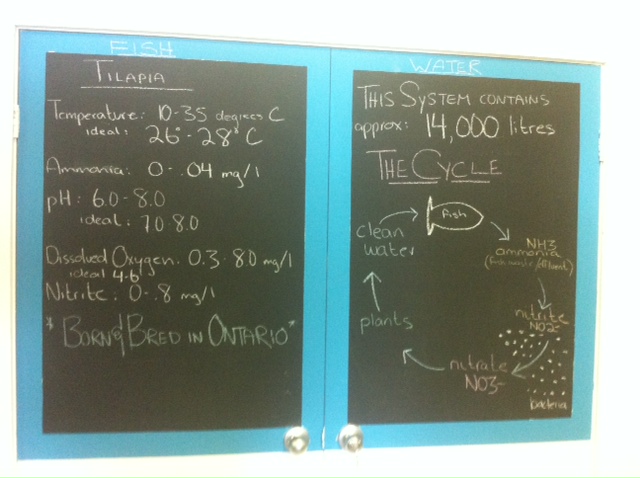 FISH
TILAPIA
Temperature: 10-35 degrees C
ideal: 26°-28° C
Ammonia: 0-.04 mg/l
pH: 6.0-8.0
ideal: 7.0-8.0
Dissolved Oxygen: 0.3-8.0 mg/l
ideal 4-6
Nitrite: 0-.8 mg/l
"BORN & BRED IN ONTARIO"
WATER
THIS SYSTEM CONTAINS
approx: 14,000 litres
THE CYCLE
fish
NH3
ammonia
(fish waste/effluent)
nitrite
NO2-
bacteria
nitrate
NO3-
plants
clean
water